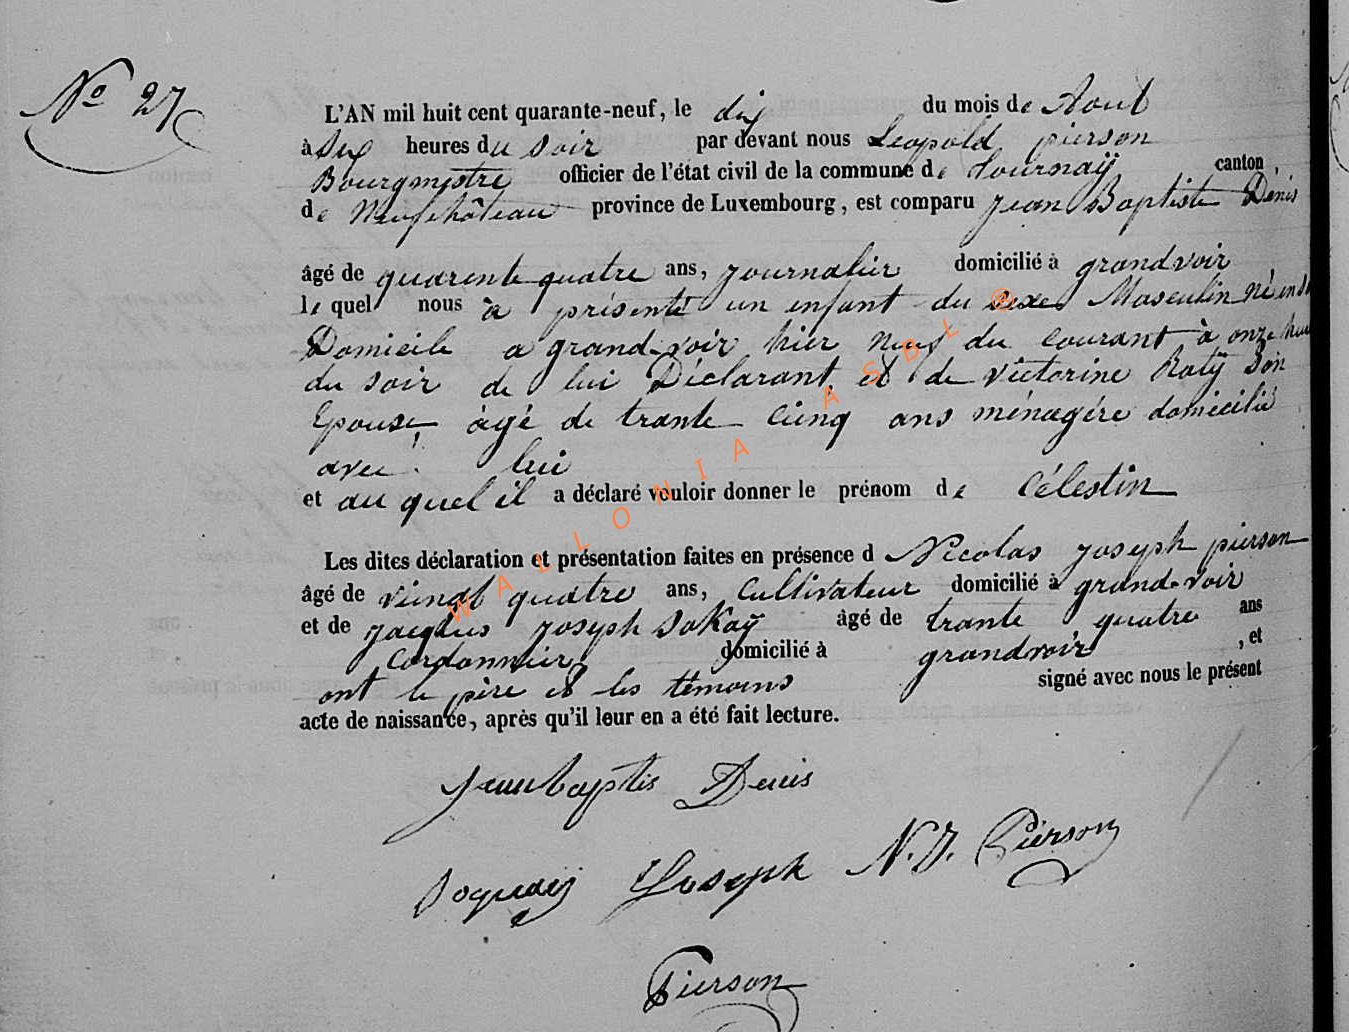 No 27
L'AN mil huit cent quarante-neuf, le dix du mois de Aout
à six heures du soir par devant nous Léopold pierson
Bourgmestre officier de l'état civil de la commune de Tournaÿ canton
de Neufchâteau province de Luxembourg, est comparu Jean Baptiste Dénis
âgé de quarente quatre ans, journalier domicilié à grandvoir
le quel nous à présenté un enfant du sexe Masculin né en
Domicile a grand-voir hier neuf du courant à onze
du soir de lui Déclarant et de victorine Ratÿ Son
Epouse âgé de trante cinq ans ménagére domicilié
avec lui
et au quel il a déclaré vouloir donner le prénom de Célestin
Les dites déclaration et présentation faites en présence d Nicolas Joseph pierson
âgé de vingt quatre ans, cultivateur domicilié à grand-voir
et de jacques joseph soKaÿ âgé de trante quatre ans
Cordonnier domicilié à grandvoir , et
ont le père et les témoins signé avec nous le présent
acte de naissance, après qu'il leur en a été fait lecture.
Jean baptis Denis
Joseph N. J. Pierson
Pierson
WALLONIA ASBL ©